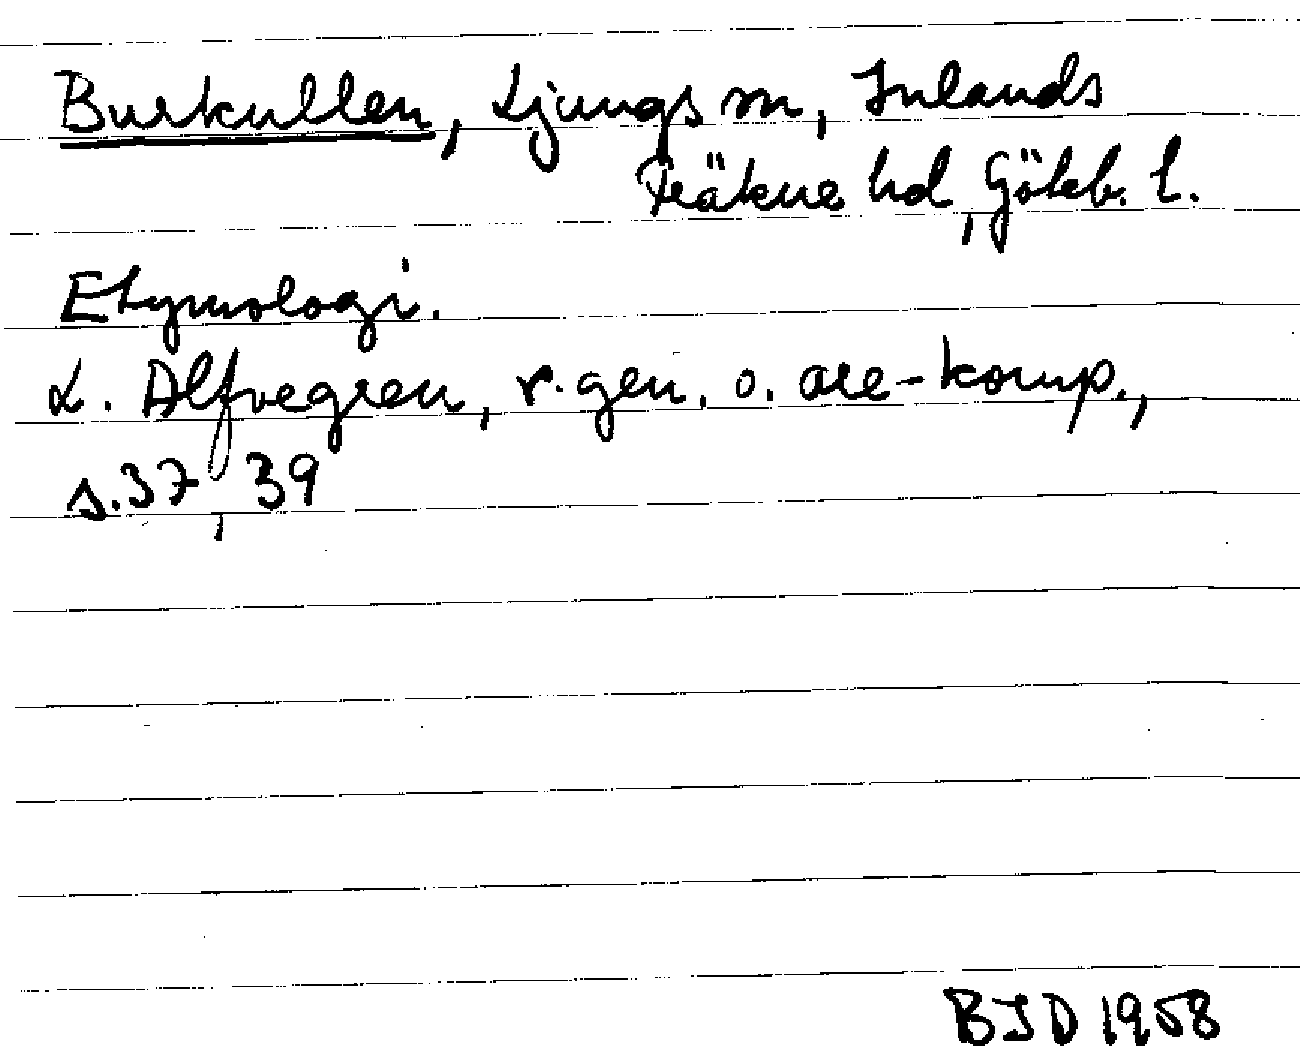 Burkullen, Ljungs sn, Inlands
Fräkne hd, Göteb. l.
Etymologi.
L. Alfvegren, r. gen. o. are-komp.,
s. 37, 39
BJD 1958